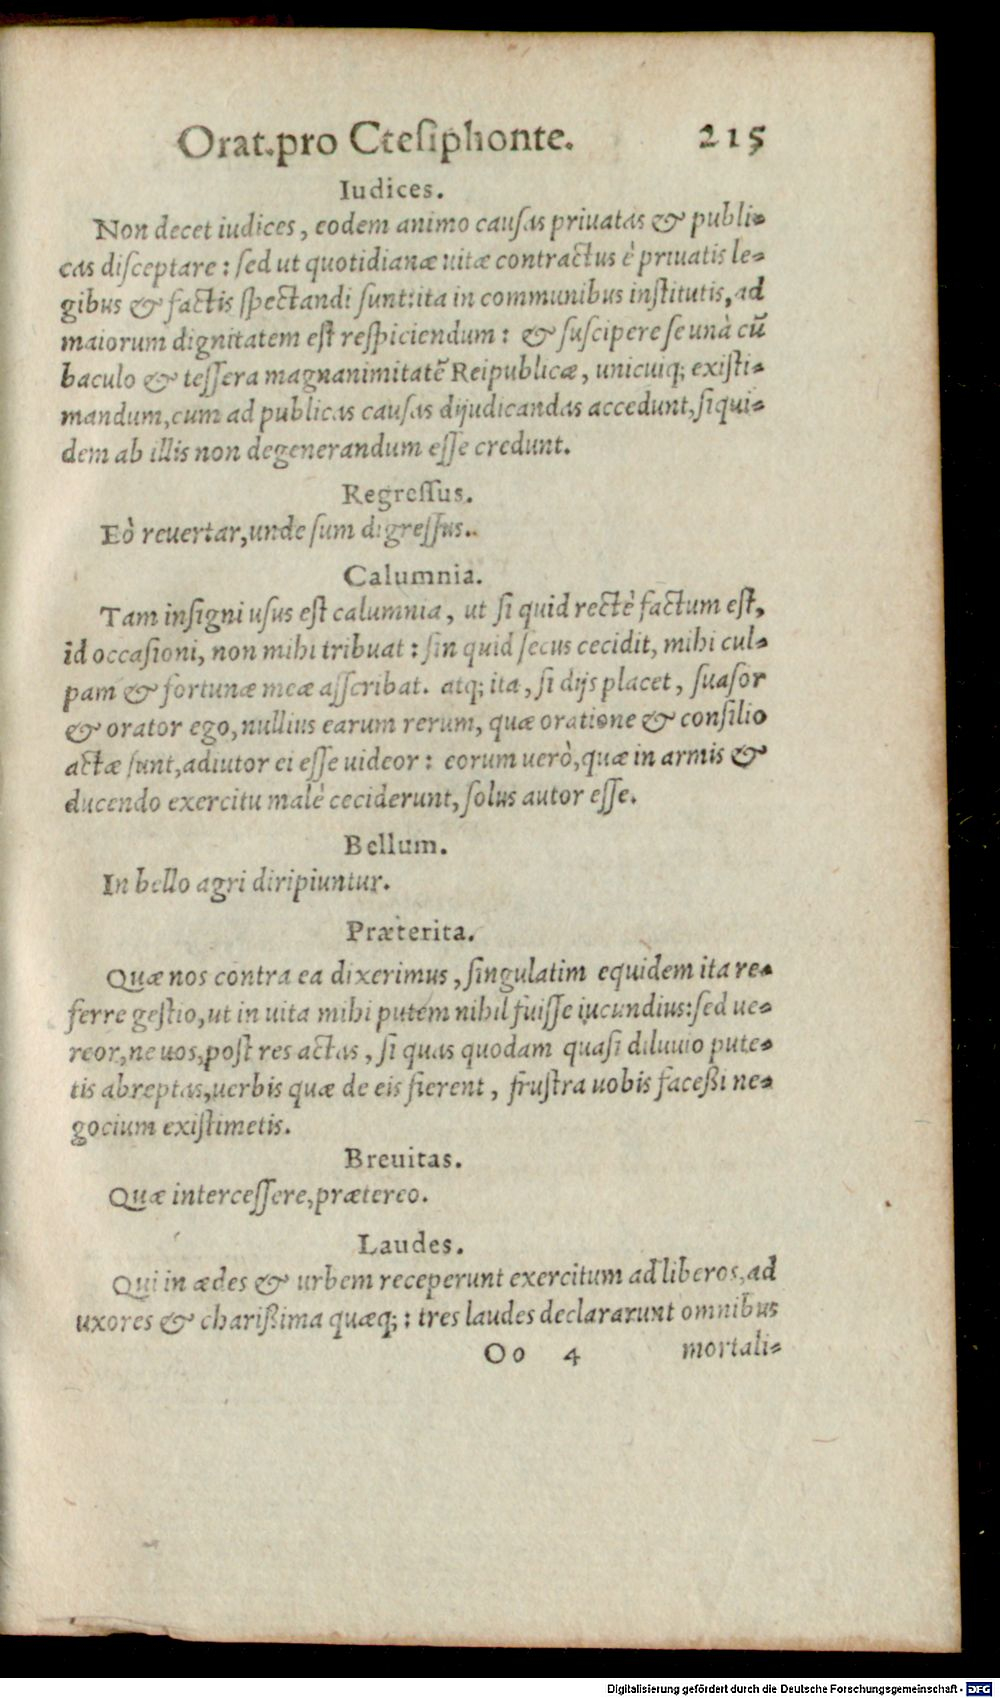 Orat.pro Ctesiphonte. 215
Iudices.
Non decet iudices, eodem animo causas priuatas & publi-
cas disceptare: sed ut quotidianæ uitæ contractus è priuatis le-
gibus & factis spectandi sunt:ita in communibus institutis, ad
maiorum dignitatem est respiciendum: & suscipere se unà cū
baculo & tessera magnanimitatē Reipublicæ, unicuiq; existi-
mandum,cum ad publicas causas dijudicandas accedunt, siqui-
dem ab illis non degenerandum esse credunt.
Regressus.
Eò reuertar,unde sum digressus.
Calumnia.
Tam insigni usus est calumnia, ut si quid rectè factum est,
id occasioni, non mihi tribuat: sin quid secus cecidit, mihi cul-
pam & fortunæ meæ asscribat. atq; ita, si dijs placet, suasor
& orator ego, nullius earum rerum, quæ oratione & consilio
actæ sunt,adiutor ei esse uideor: eorum uerò,quæ in armis &
ducendo exercitu malè ceciderunt, solus autor esse.
Bellum.
In bello agri diripiuntur.
Præterita.
Quæ nos contra ea dixerimus, singulatim equidem ita re-
ferre gestio,ut in uita mihi putem nihil fuisse iucundius:sed ue-
reor,ne uos,post res actas, si quas quodam quasi diluuio pute-
tis abreptas,uerbis quæ de eis fierent, frustra uobis facessi ne-
gocium existimetis.
Breuitas.
Quæ intercessere,prætereo.
Laudes.
Qui in ædes & urbem receperunt exercitum ad liberos,ad
uxores & charißima quæq;: tres laudes declararunt omnibus
Oo 4 mortali-
Digitalisierung gefördert durch die Deutsche Forschungsgemeinschaft - DFG